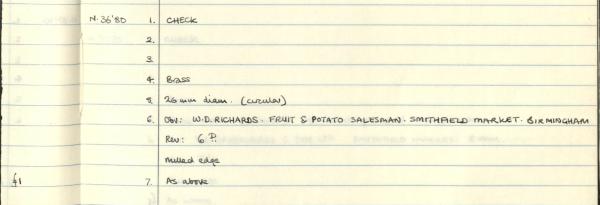 N.36'80 1. CHECK
2.
3.
4. Brass
5. 26mm diam. (circular)
6. Obv: W.D. RICHARDS. FRUIT & POTATO SALESMAN. SMITHFIELD MARKET. BIRMINGHAM
Rev: 6 P.
milled edge
£1 7. As above